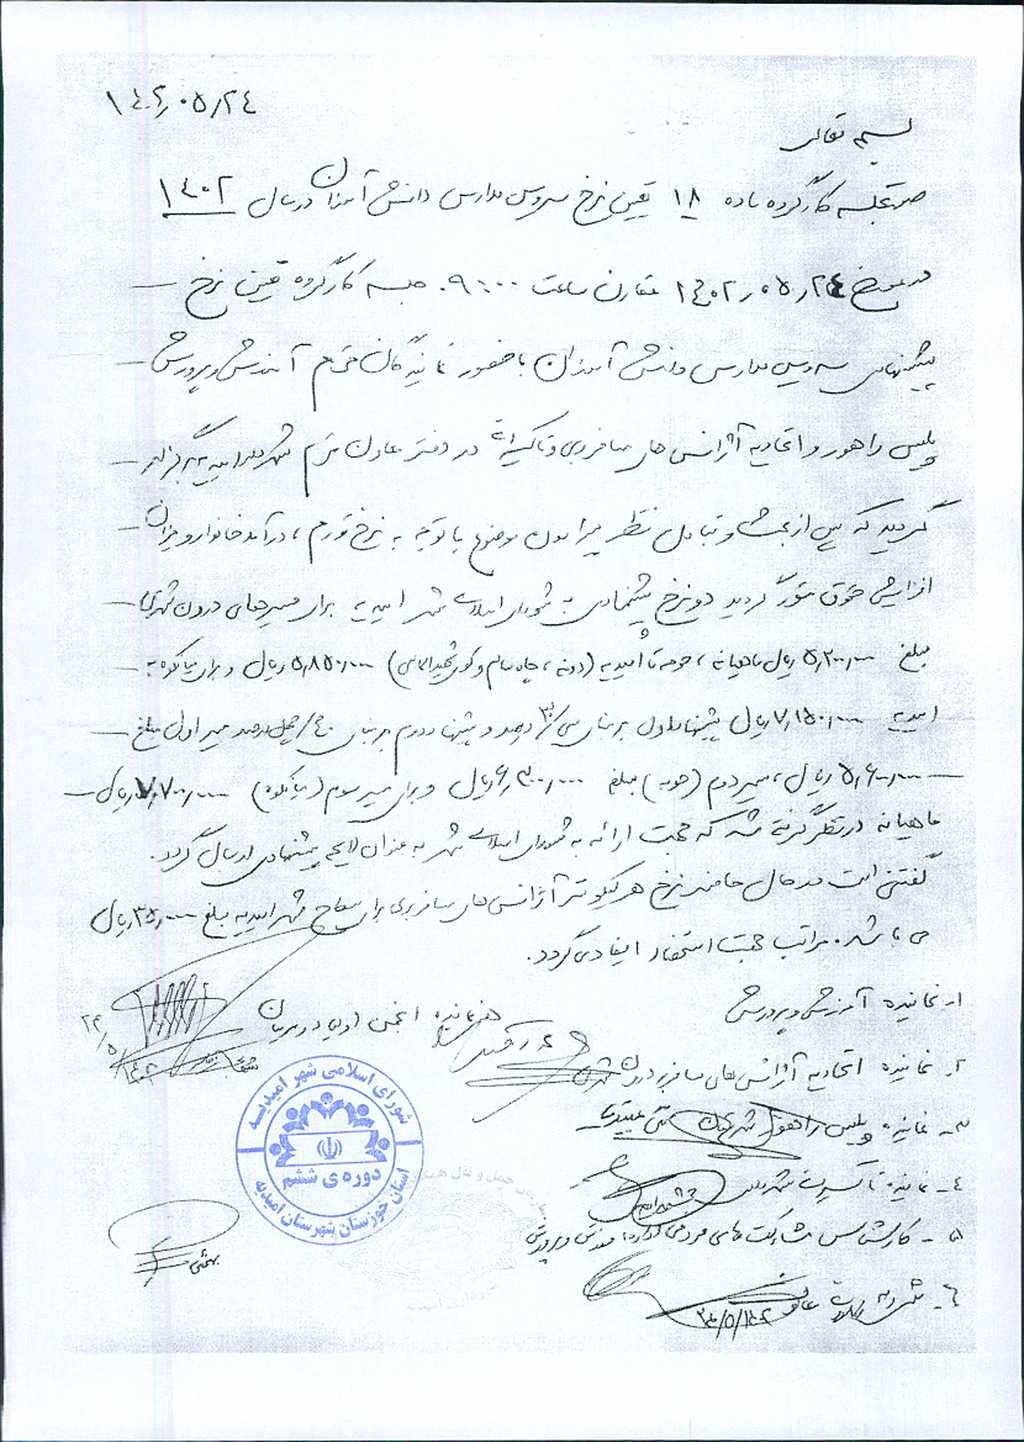 ۱۴۰۲/۰۵/۲۴
بسمه تعالی
صورتجلسه کارگروه ماده ۱۸ تعیین نرخ سرویس مدارس دانش آموزان در سال ۱۴۰۲
در مورخ ۱۴۰۲/۰۵/۲۴ مقارن ساعت ۰۹:۰۰ جلسه کارگروه تعیین نرخ
پیشنهادی سرویس مدارس دانش آموزان با حضور نمایندگان محترم آموزش و پرورش
پلیس راهور و اتحادیه آژانس های مسافربری و تاکسیرانی در دفتر معاون محترم شهردار امیدیه برگزار
گردید که پس از بحث و تبادل نظر پیرامون موضوع با توجه به نرخ تورم ، درآمد خانوار و میزان
افزایش حقوق مقرر گردید دو نرخ پیشنهادی به شورای اسلامی شهر امیدیه برای مسیرهای درون شهری
مبلغ ۵،۲۰۰،۰۰۰ ریال ماهیانه ، حومه تا امیدیه (، چاه سالم و کوی شهید) ۵،۸۵۰،۰۰۰ ریال و برای میانکوه به
امیدیه ۷،۱۵۰،۰۰۰ ریال پیشنهاد اول بر مبنای سی ۳۰ درصد و پیشنهاد دوم بر مبنای ۴۰ / چهل درصد مسیر اول مبلغ
۵،۶۰۰،۰۰۰ ریال ، مسیر دوم (حومه) مبلغ ۶،۳۰۰،۰۰۰ ریال و برای مسیر سوم (میانکوه) ۷،۷۰۰،۰۰۰ ریال
ماهیانه در نظر گرفته شد که جهت ارائه به شورای اسلامی شهر به عنوان لایحه پیشنهادی ارسال گردد.
گفتنی است در حال حاضر نرخ هر کیلومتر آژانس های مسافربری برای سطح شهر امیدیه مبلغ ۳۵،۰۰۰ ریال
می باشد. مراتب جهت استحضار ایفاد می گردد.
۱- نماینده آموزش و پرورش
نماینده انجمن اولیا و مربیان
۲- نماینده اتحادیه آژانس های مسافربری درون شهری
۳- نماینده پلیس راهور شهرستان
۴- نماینده تاکسیرانی شهرداری
۵- کارشناس مشارکت های مردمی اداره آموزش و پرورش
۶-
۱۴۰۲/۵/۲۴
شورای اسلامی شهر امیدیه
دوره ی ششم
استان خوزستان شهرستان امیدیه
بهمئی